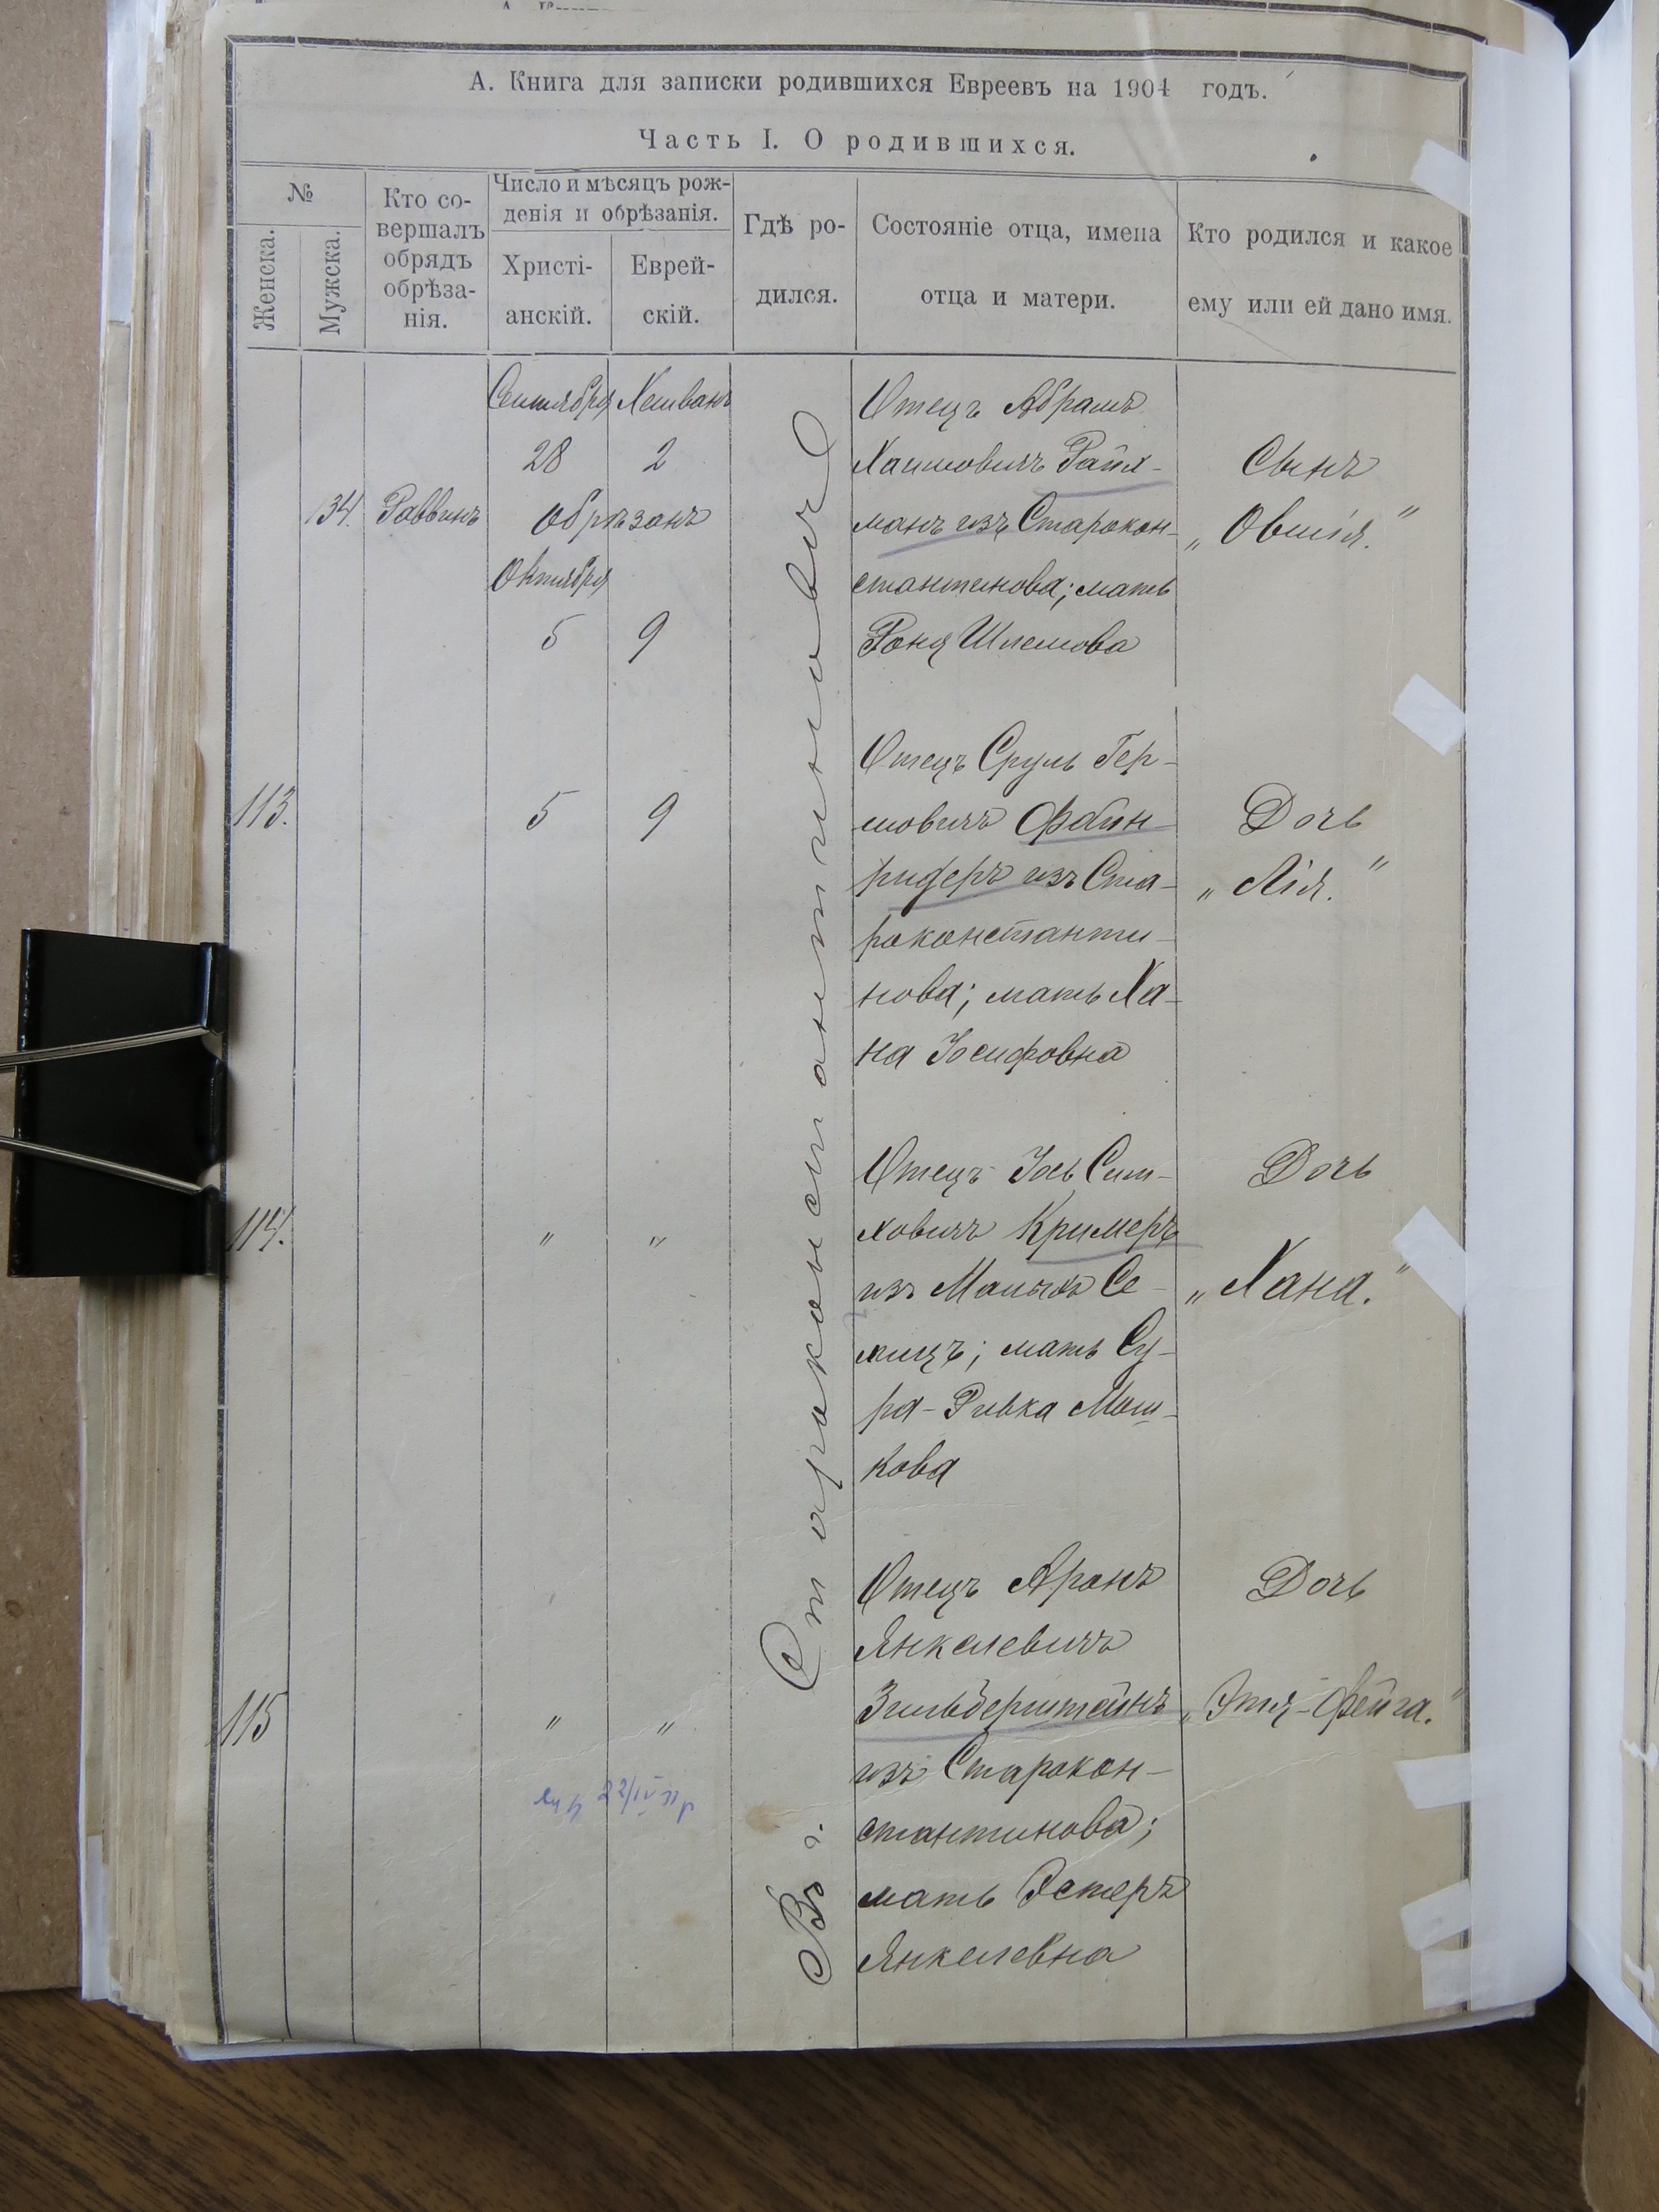 А. Книга для записки родившихся Евреевъ на 1904 годъ.
Часть I. О родившихся.
№
Женска.
Мужска.
Кто со-
вершалъ
обрядъ
обрѣза-
нія.
Число и мѣсяцъ рож-
денія и обрѣзанія.
Христі-
анскій.
Еврей-
скій.
Гдѣ ро-
дился.
Состояніе отца, имена
отца и матери.
Кто родился и какое
ему или ей дано имя.
Въ г. Староконстантиновѣ
134.
Раввинъ
Сентября Хешванъ
28 2
Обрѣзанъ
Октября
5 9
Отецъ Абрамъ
Хаимовичъ Райх-
манъ изъ Старокон-
стантинова; мать
Раня Шлемова
Сынъ
„Овшія."
113.
5 9
Отецъ Сруль Гер-
шовичъ Фаин-
ридеръ изъ Ста-
роконстанти-
нова; мать Ха-
на Іосифовна
Дочь
„Лія."
114.
" "
Отецъ Іось Сим-
ховичъ Кримеръ
изъ Малыхъ Се-
лищъ; мать Су-
ра-Ривка Мош-
кова
Дочь
„Хана."
115
" "
22/IV
Отецъ Аронъ
Янкелевичъ
Зильберштейнъ
изъ Старокон-
стантинова;
мать Эстеръ
Янкелевна
Дочь
„Этя-Фейга."